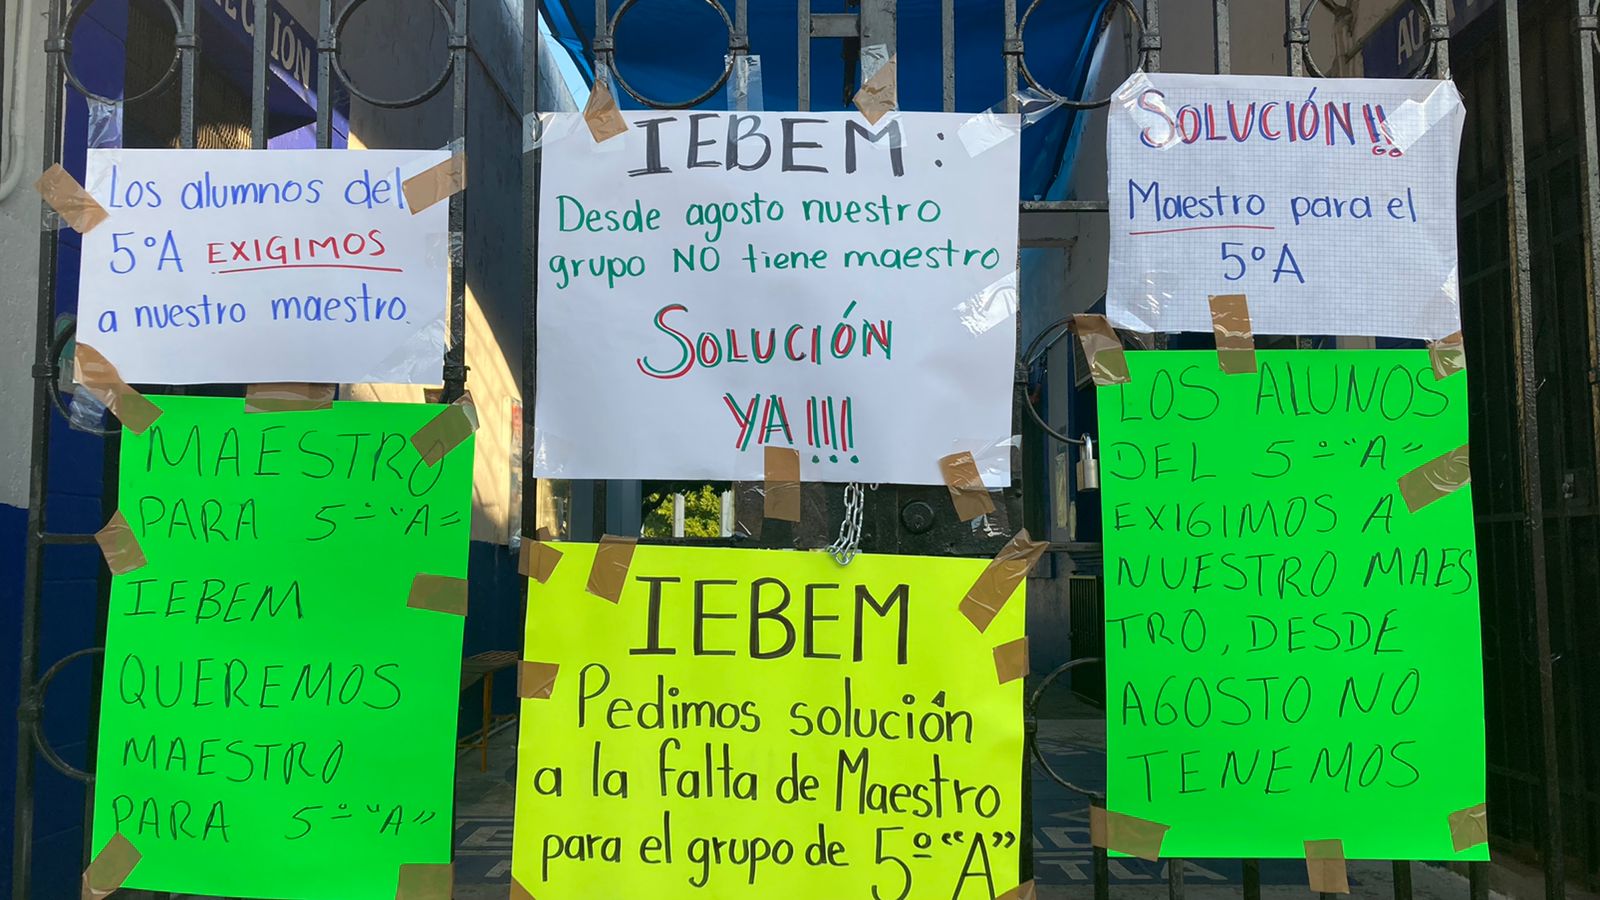 CCIÓN
Los alumnos del
5°A EXIGIMOS
a nuestro maestro.
IEBEM:
Desde agosto nuestro
grupo NO tiene maestro
SOLUCIÓN
YA!!!
SOLUCIÓN!!
Maestro para el
5°A
MAESTRO
PARA 5º "A"
IEBEM
QUEREMOS
MAESTRO
PARA 5º "A"
IEBEM
Pedimos solución
a la falta de Maestro
para el grupo de 5º "A"
LOS ALUNOS
DEL 5º "A"
EXIGIMOS A
NUESTRO MAES
TRO, DESDE
AGOSTO NO
TENEMOS